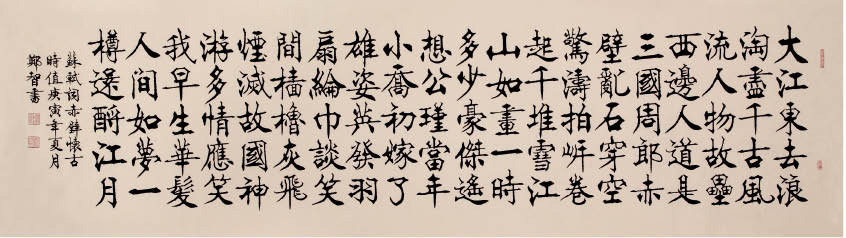 大江東去浪
淘盡千古風
流人物故壘
西邊人道是
三國周郎赤
壁亂石穿空
驚濤拍岍卷
起千堆雪江
山如畫一時
多少豪傑遙
想公瑾當年
小喬初嫁了
雄姿英發羽
扇綸巾談笑
間檣櫓灰飛
煙滅故國神
游多情應笑
我早生華髮
人間如夢一
樽還酹江月
蘇軾詞赤壁懷古
時值庚寅年夏月
鄭智書